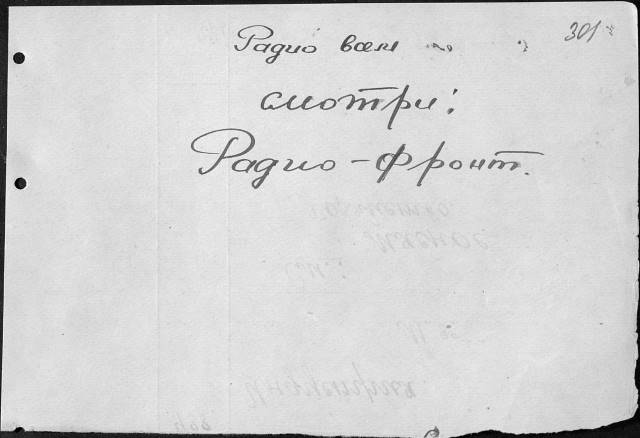 301
Радио всем
смотри:
Радио-фронт.